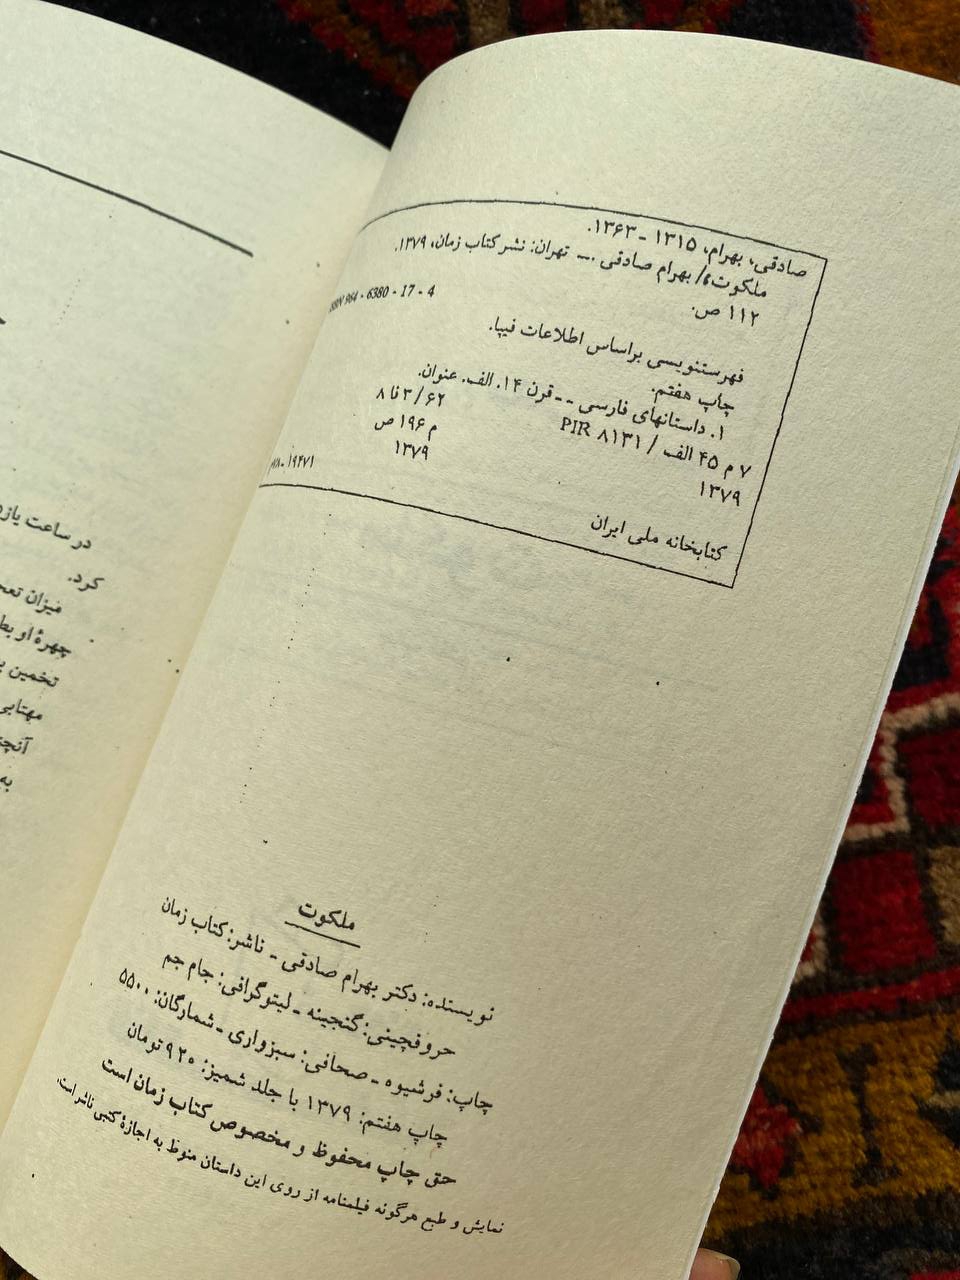 صادقی، بهرام، ۱۳۱۵ - ۱۳۶۳.
ملکوت/ بهرام صادقی .-- تهران: نشر کتاب زمان، ۱۳۷۹.
۱۱۲ ص.
ISBN 964 - 6380 - 17 - 4
فهرستنویسی براساس اطلاعات فیپا.
چاپ هفتم.
۱. داستانهای فارسی -- قرن ۱۴. الف. عنوان.
۷ م ۴۵ الف / PIR ۸۱۳۱ ۸ فا ۳ / ۶۲
۱۳۷۹ م ۱۹۶ ص
۱۳۷۹
۱۹۴۷۱
کتابخانه ملی ایران
ملکوت
نویسنده: دکتر بهرام صادقی - ناشر: کتاب زمان
حروفچینی: گنجینه - لیتوگرافی: جام جم
چاپ: فرشیوه - صحافی: سبزواری - شمارگان: ۵۵۰۰
چاپ هفتم: ۱۳۷۹ با جلد شمیز: ۹۲۰ تومان
حق چاپ محفوظ و مخصوص کتاب زمان است
نمایش و طبع هرگونه فیلمنامه از روی این داستان منوط به اجازهٔ کتبی ناشر است.
در ساعت
کرد.
میزان
چهرهٔ او
تخمین
مهتابی
به